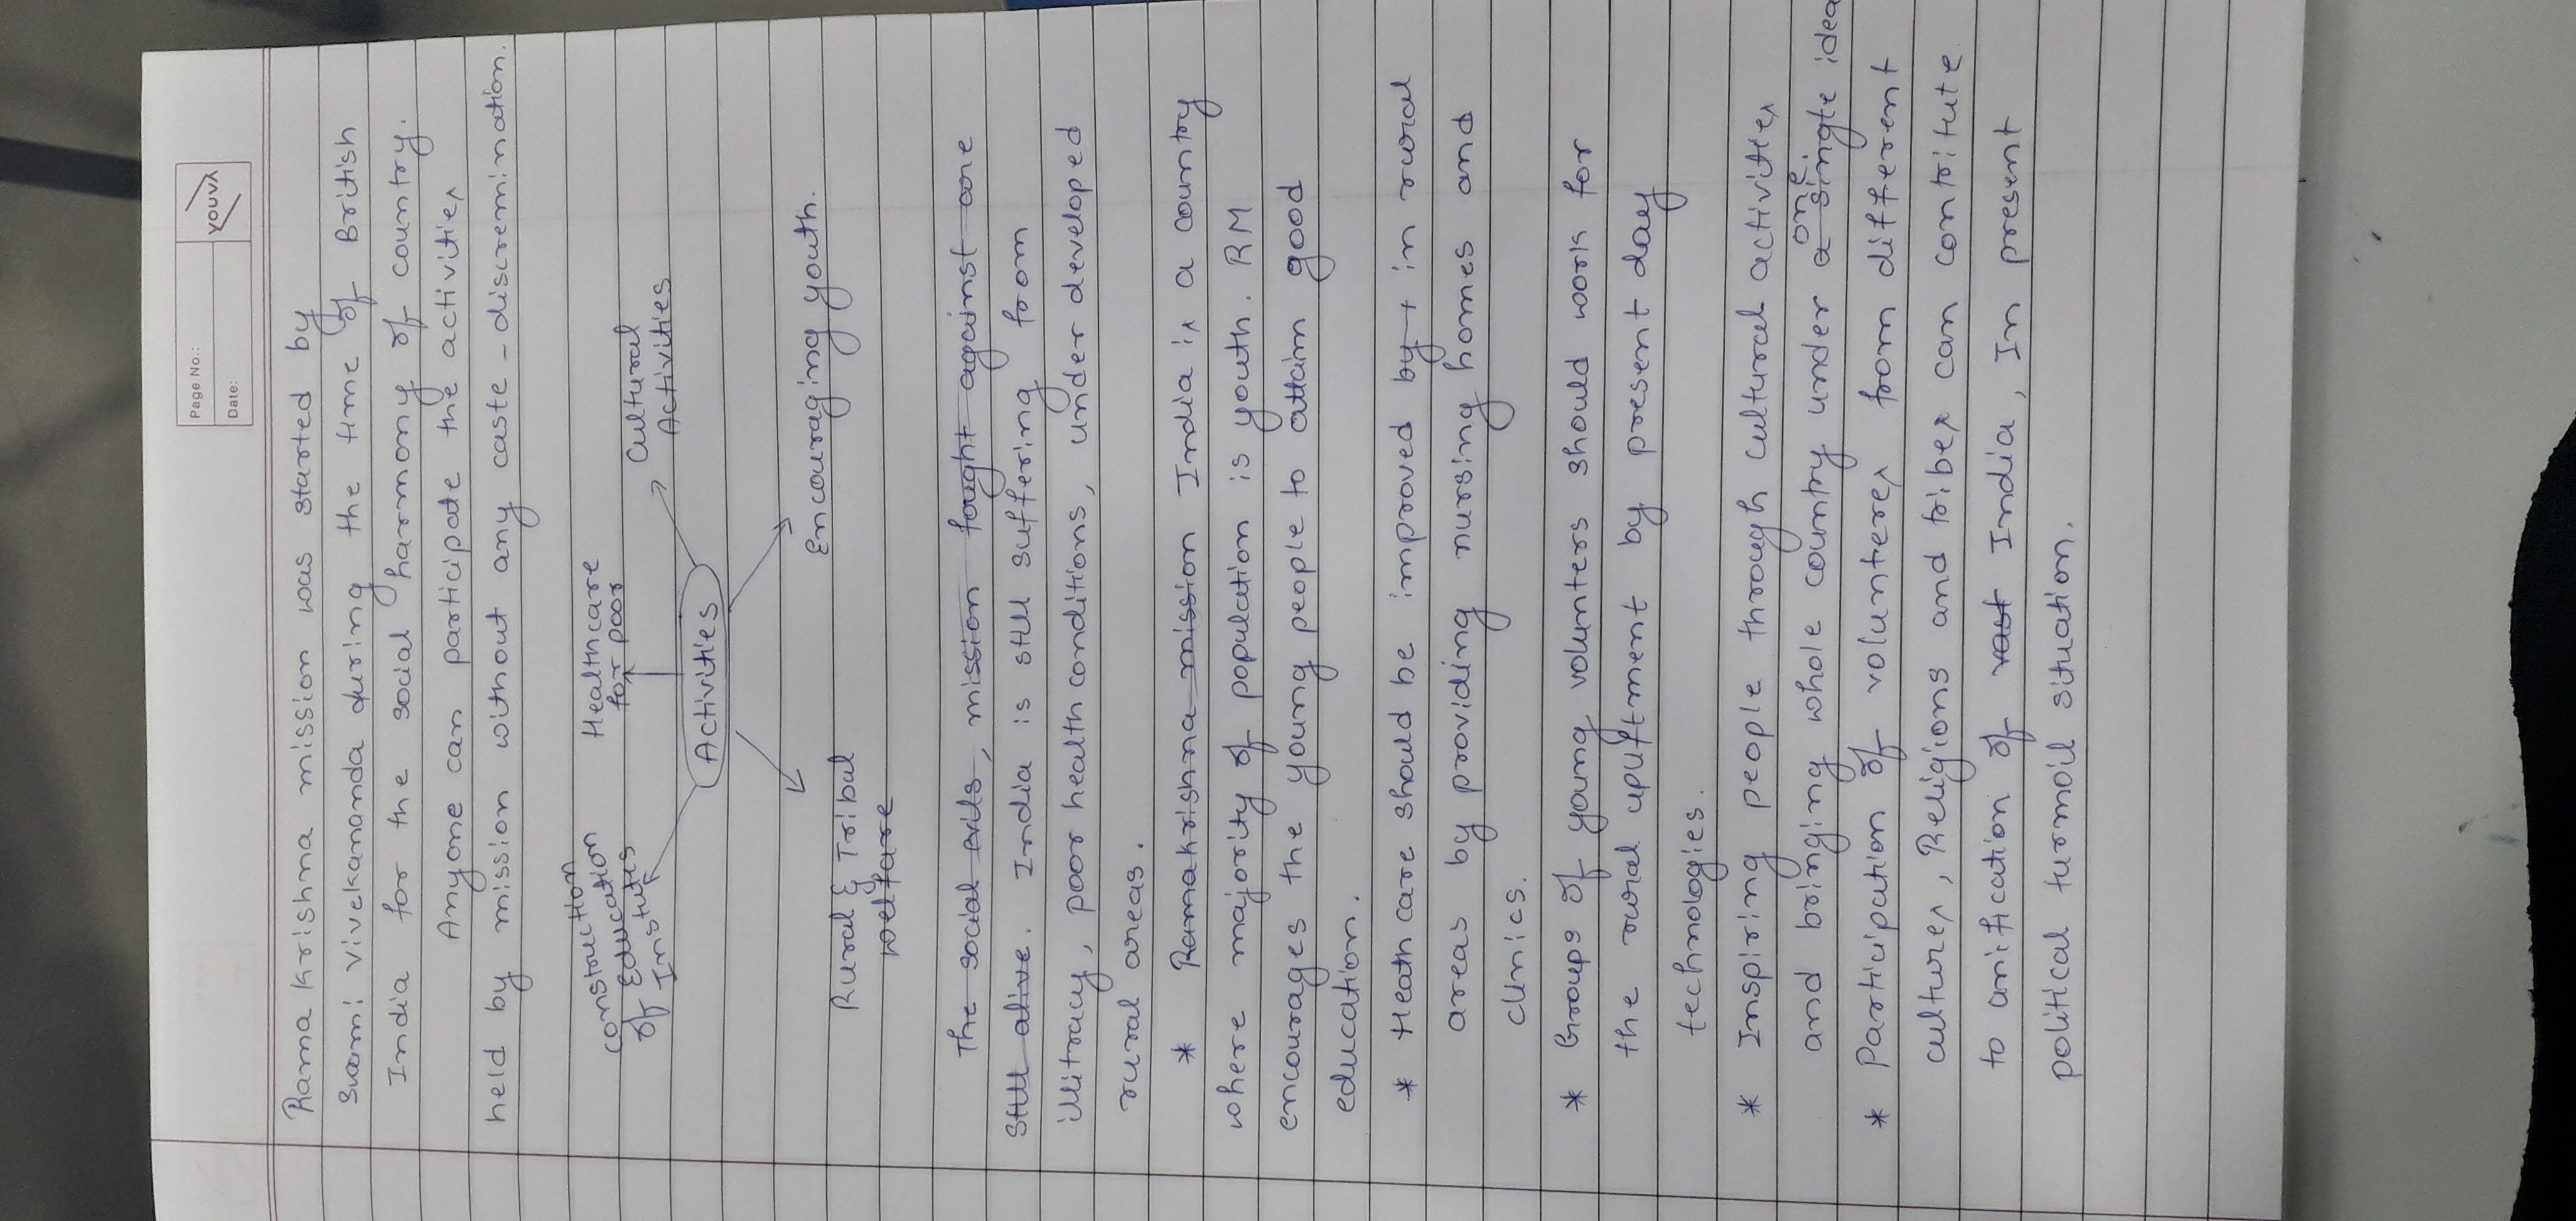 Page No.:
Date:
YOUVA
Rama Krishna mission was started by
Swami vivekananda during the time of British
India for the social harmony of country.
Anyone can participate the activities
held by mission without any caste - discremination.
construction
of Education
Institutes
Healthcare
for poor
Cultural
Activities
Activities
Rural & Tribal
welfare
Encouraging youth.
The social evils, mission fought against are
still alive. India is still suffering from
illitracy, poor health conditions, under developed
rural areas.
* Ramakrishna mission India is a country
where majority of population is youth. RM
encourages the young people to attain good
education.
* Heath care should be improved by t in rural
areas by providing nursing homes and
clinics.
* Groups of young volunters should work for
the rural upuftment by present day
technologies.
* Inspiring people through cultural activities
one
and bringing whole country under a single idea
* Participation of volunteres from different
cultures, Religions and tribes can contritute
to unification of vast India, In present
political turmoil situation.